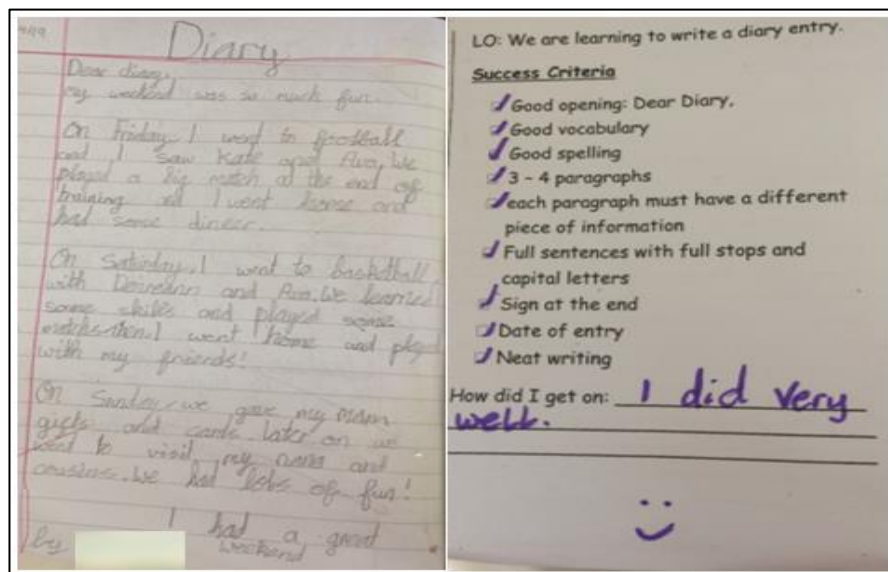 Diary
Dear diary,
my weekend was so much fun.
On Friday, I went to football
and I saw Kate and Ava. We
played a big match at the end of
training. I went home and
had some dinner.
On Saturday, I went to basketball
with and Ava. We learned
some skills and played some
matches. then I went home and played
with my friends!
On Sunday, we gave my mam
gifts and cards. Later on we
went to visit my nana and
cousins. We had lots of fun!
I had a great
by weekend
LO: We are learning to write a diary entry.
Success Criteria
Good opening: Dear Diary,
Good vocabulary
Good spelling
3 - 4 paragraphs
each paragraph must have a different
piece of information
Full sentences with full stops and
capital letters
Sign at the end
Date of entry
Neat writing
How did I get on: I did very
well.